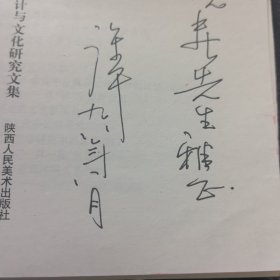 先生雅正
许平
九八年八月
计与文化研究文集
陕西人民美术出版社